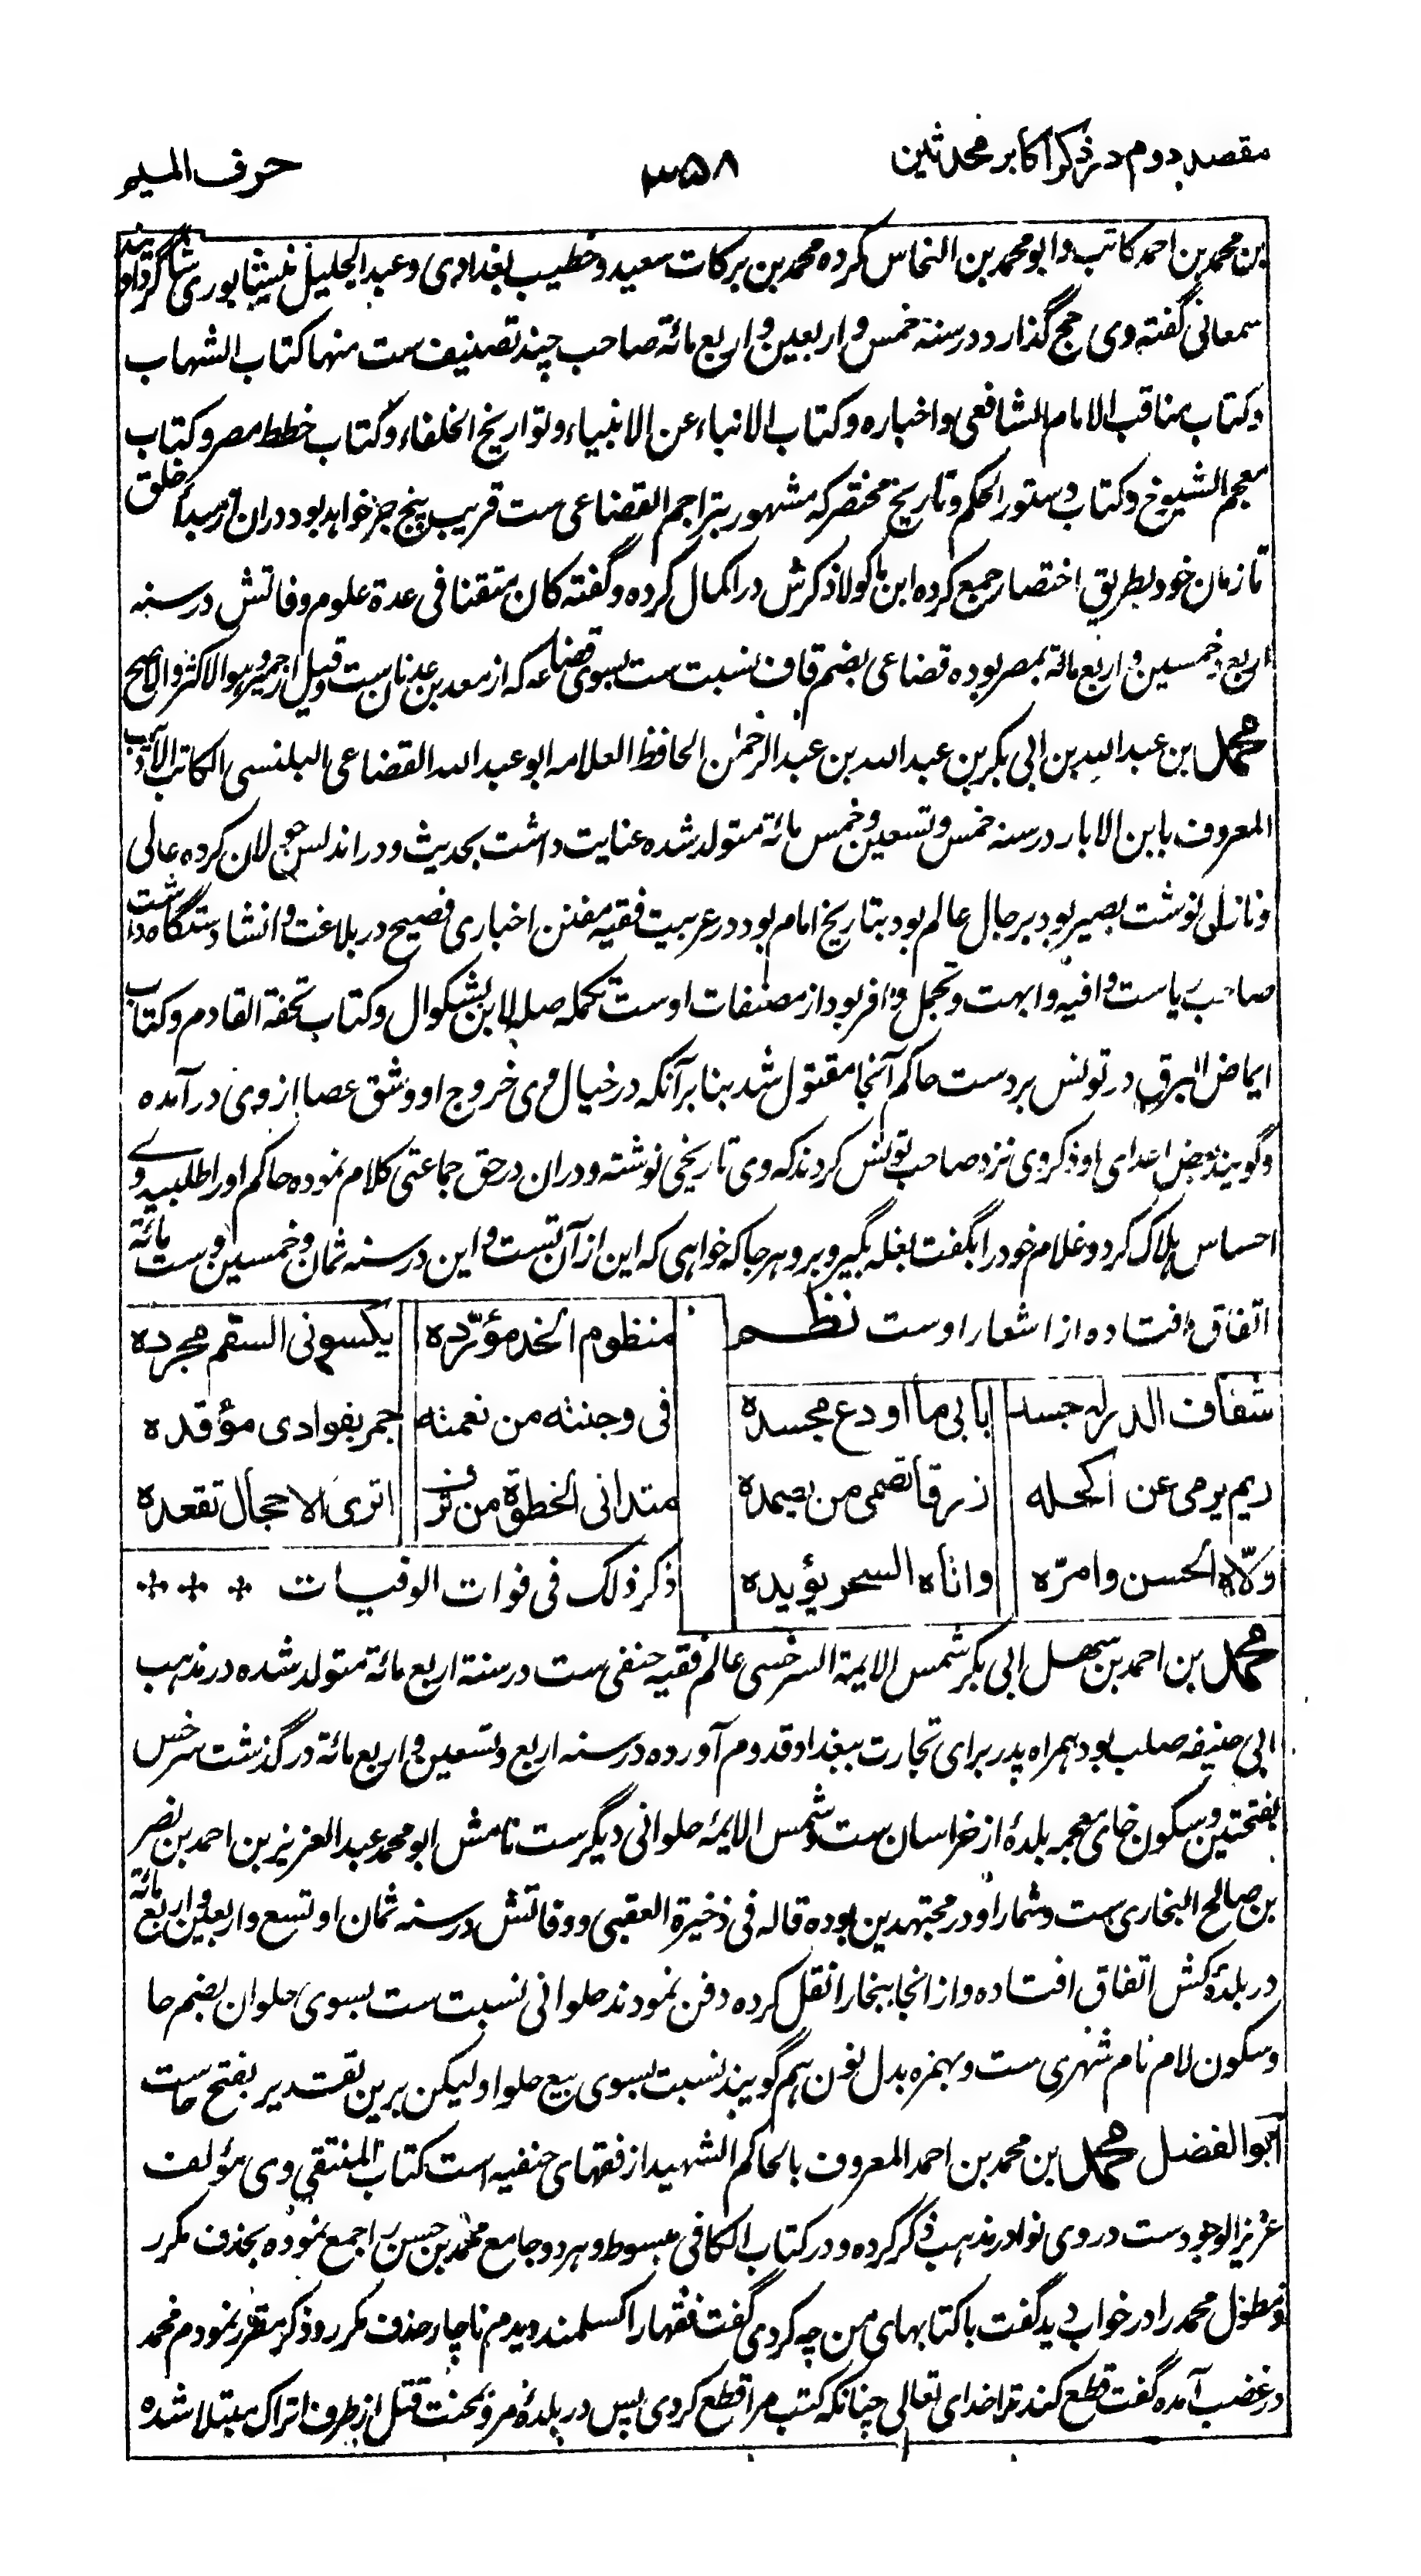 مقصد دوم در ذکر اکابر محدثین ۳۵۸ حرف المیم
بن محمد بن احمد کاتب و ابو محمد بن النحاس کرده محمد بن برکات سعید و خطیب بغدادی و عبد الجلیل نیشاپوری شاگرد او
سمعانی گفته وی حج گذارد در سنة خمس و اربعین و اربع مائة صاحب چند تصنیف ست منها کتاب الشهاب
و کتاب مناقب الامام الشافعی و اخباره و کتاب الانباء عن الانبیاء و تواریخ الخلفاء و کتاب خطط مصر و کتاب
معجم الشیوخ و کتاب دستور الحکم و تاریخ مختصر که مشهور بتراجم القضاعی ست قریب پنج جز خواهد بود دران از مبدأ خلق
تا زمان خود بطریق اختصار جمع کرده ابن ماکولا ذکرش در اکمال کرده و گفته کان متقنا فی عدة علوم وفاتش در سنه
اربع و خمسین و اربع مائة بمصر بوده قضاعی بضم قاف نسبت ست بسوی قضاعه که از معد بن عدنان ست و قیل از حمیر و هو الاکثر والاصح
محمد بن عبد الله بن ابی بکر بن عبد الله بن عبد الرحمن الحافظ العلامه ابو عبد الله القضاعی البلنسی الکاتب الادیب
المعروف بابن الابار در سنه خمس و تسعین و خمس مائة متولد شده عنایت داشت بحدیث و در اندلس جولان کرده عالی
و نازلی نوشت بصیر بود برجال عالم بود بتاریخ امام بود در عربیت فقیه مفنن اخباری فصیح در بلاغت و انشا دستگاه داشت
صاحب ریاست وافیه و ابهت و تجمل وافر بود از مصنفات اوست تکمله صله لابن بشکوال و کتاب تحفة القادم و کتاب
ایماض البرق در تونس بر دست حاکم آنجا مقتول شد بنابر آنکه در خیال وی خروج او و شق عصا از وی در آمده
و گویند بعض اعدای او ذکر وی نزد صاحب تونس کردند که وی تاریخی نوشته و دران در حق جماعتی کلام نموده حاکم او را طلبید وی
احساس هلاک کرد و غلام خود را بگفت بغله بگیر و برو هر جا که خواهی که این از آن تست و این در سنه ثمان و خمسین و ست مائة
اتفاق افتاده از اشعار اوست نظم
منظوم الخد مؤرّده یکسونی السقم مجرده
شفاف الدر له جسد بابی ما اودع مجسده
فی وجنته من نعمته جمر بفوادی مؤقده
ریم یرمی عن اکحله زرقا تصمی من یصمده
متدانی الخطوة من ترف اتری الاحجال تقعده
ولّاه الحسن وامرّه واتاه السحر یؤیده
ذکر ذلک فی فوات الوفیات
محمد بن احمد بن سهل ابی بکر شمس الایمة السرخسی عالم فقیه حنفی ست در سنة اربع مائة متولد شده در مذهب
ابی حنیفه صلب بود همراه پدر برای تجارت ببغداد قدوم آورده در سنه اربع و تسعین و اربع مائة در گذشت سرخس
بفتحتین و سکون خای معجمه بلدهٔ از خراسان ست و شمس الایمه حلوانی دیگرست نامش ابو محمد عبد العزیز بن احمد بن نصر
بن صالح البخاری ست و شمار او در مجتهدین بوده قاله فی ذخیرة العقبی و وفاتش در سنه ثمان او تسع و اربعین و اربع مائة
در بلدهٔ کش اتفاق افتاده و از انجا ببخارا نقل کرده دفن نمودند حلوانی نسبت ست بسوی حلوان بضم حا
و سکون لام نام شهری ست و بهمزه بدل نون هم گویند نسبت بسوی بیع حلوا و لیکن برین تقدیر بفتح حاست
ابو الفضل محمد بن محمد بن احمد المعروف بالحاکم الشهید از فقهای حنفیه است کتاب المنتقی وی مؤلف
عزیز الوجودست در وی نوادر مذهب ذکر کرده و در کتاب الکافی مبسوط و هر دو جامع محمد بن حسن را جمع نموده بحذف مکرر
و مطول محمد را در خواب دید گفت با کتابهای من چه کردی گفت فقها را کسلمند دیدم ناچار حذف مکرر و ذکر مقرر نمودم محمد
در غضب آمده گفت قطع کند ترا خدای تعالی چنانکه کتب مرا قطع کردی پس در بلدهٔ مرو بمحنت قتل از طرف اتراک مبتلا شده